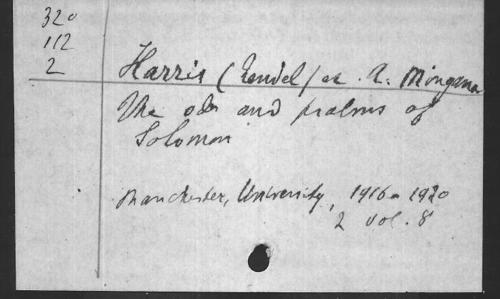 320
112
2
Harris (Rendel) et A. Mingana
The odes and psalms of
Solomon
Manchester, University, 1916-1920
2 vol. 8